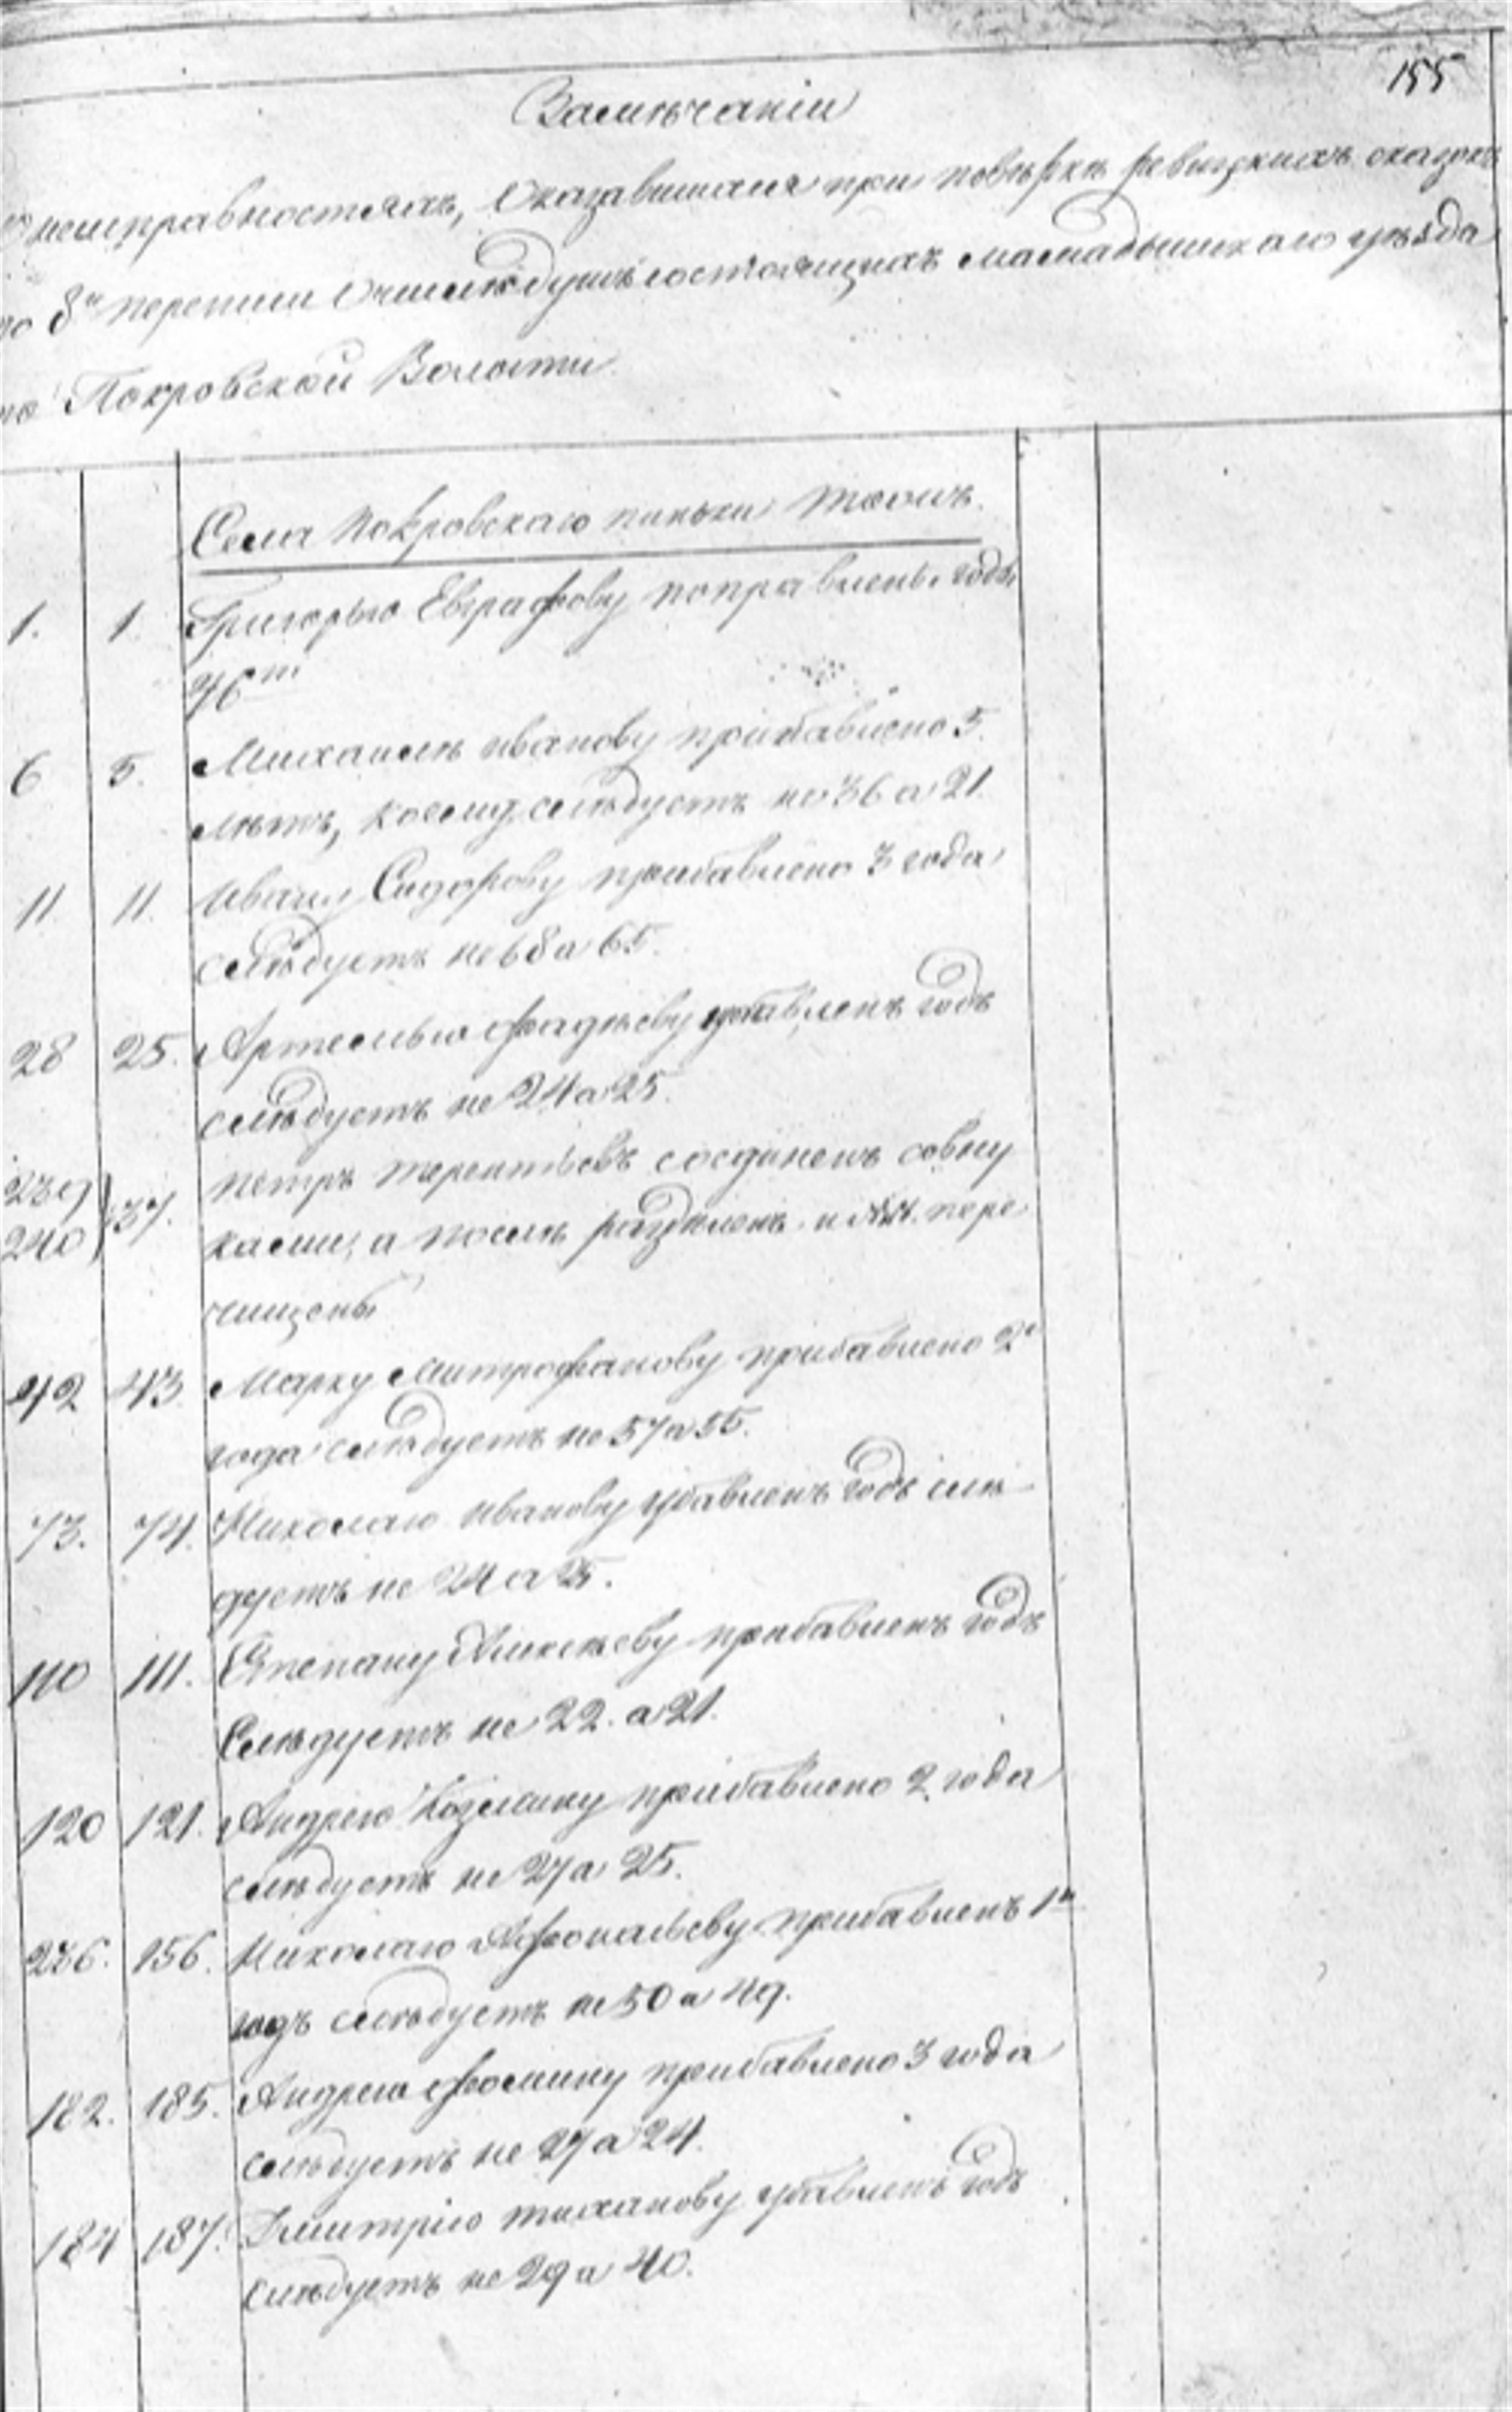 155
Замѣчаніи
О неисправностяхъ, Оказавшихся при повѣркѣ ревизкихъ сказокъ
по 8й переписи О числѣ душъ состоящихъ мамадышскаго уѣзда
по Покровской Волости.
Села Покровскаго тожъ.
1. 1. Григорью Евграфову поправленъ годъ
46ть
6 5. Михаилѣ иванову прибавлено 5.
лѣтъ, коему слѣдуетъ не 36 а 21.
11 11. Ивану Сидорову прибавлено 3 года
слѣдуетъ не 68 а 65.
28 25. Артемью Фадѣеву убавленъ годъ
слѣдуетъ не 24 а 25.
239 37. петръ терентьевъ соединенъ совну
240 ками, а послѣ раздѣленъ и №№. пере
чищены
42 43 Марку Митрофанову прибавлено 2а
года слѣдуетъ не 57 а 55.
73. 74. Николаю иванову убавленъ годъ слѣ
дуетъ не 24 а 25.
110 111. Степану Алексѣеву прибавленъ годъ
Слѣдуетъ не 22. а 21.
120 121. Андрею Козмину прибавлено 2 года
слѣдуетъ не 27 а 25.
236. 156. Николаю Афонасьеву прибавленъ 1й
годъ слѣдуетъ не 50 а 49.
182. 185. Андрею Фомину прибавлено 3 года
слѣдуетъ не 27 а 24.
184 187. Дмитрію тиханову убавленъ годъ
слѣдуетъ не 29 а 40.